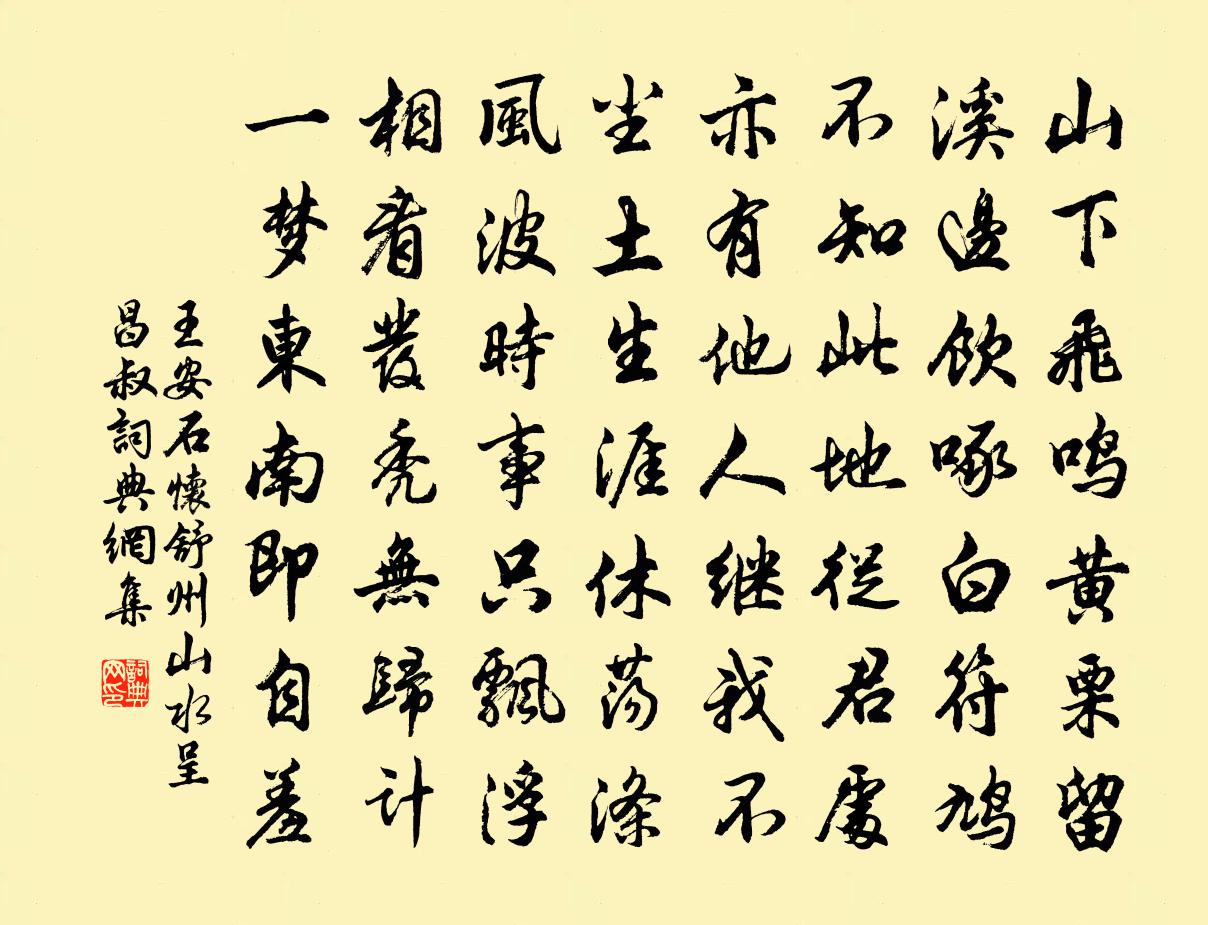 山下飛鳴黃栗留
溪邊飲啄白符鳩
不知此地從君處
亦有他人继我不
坐土生涯休荡滌
風波時事只飄浮
相看發秃無歸计
一梦東南即自羞
王安石懷舒州山水呈
昌叔詞典網集
詞典网印